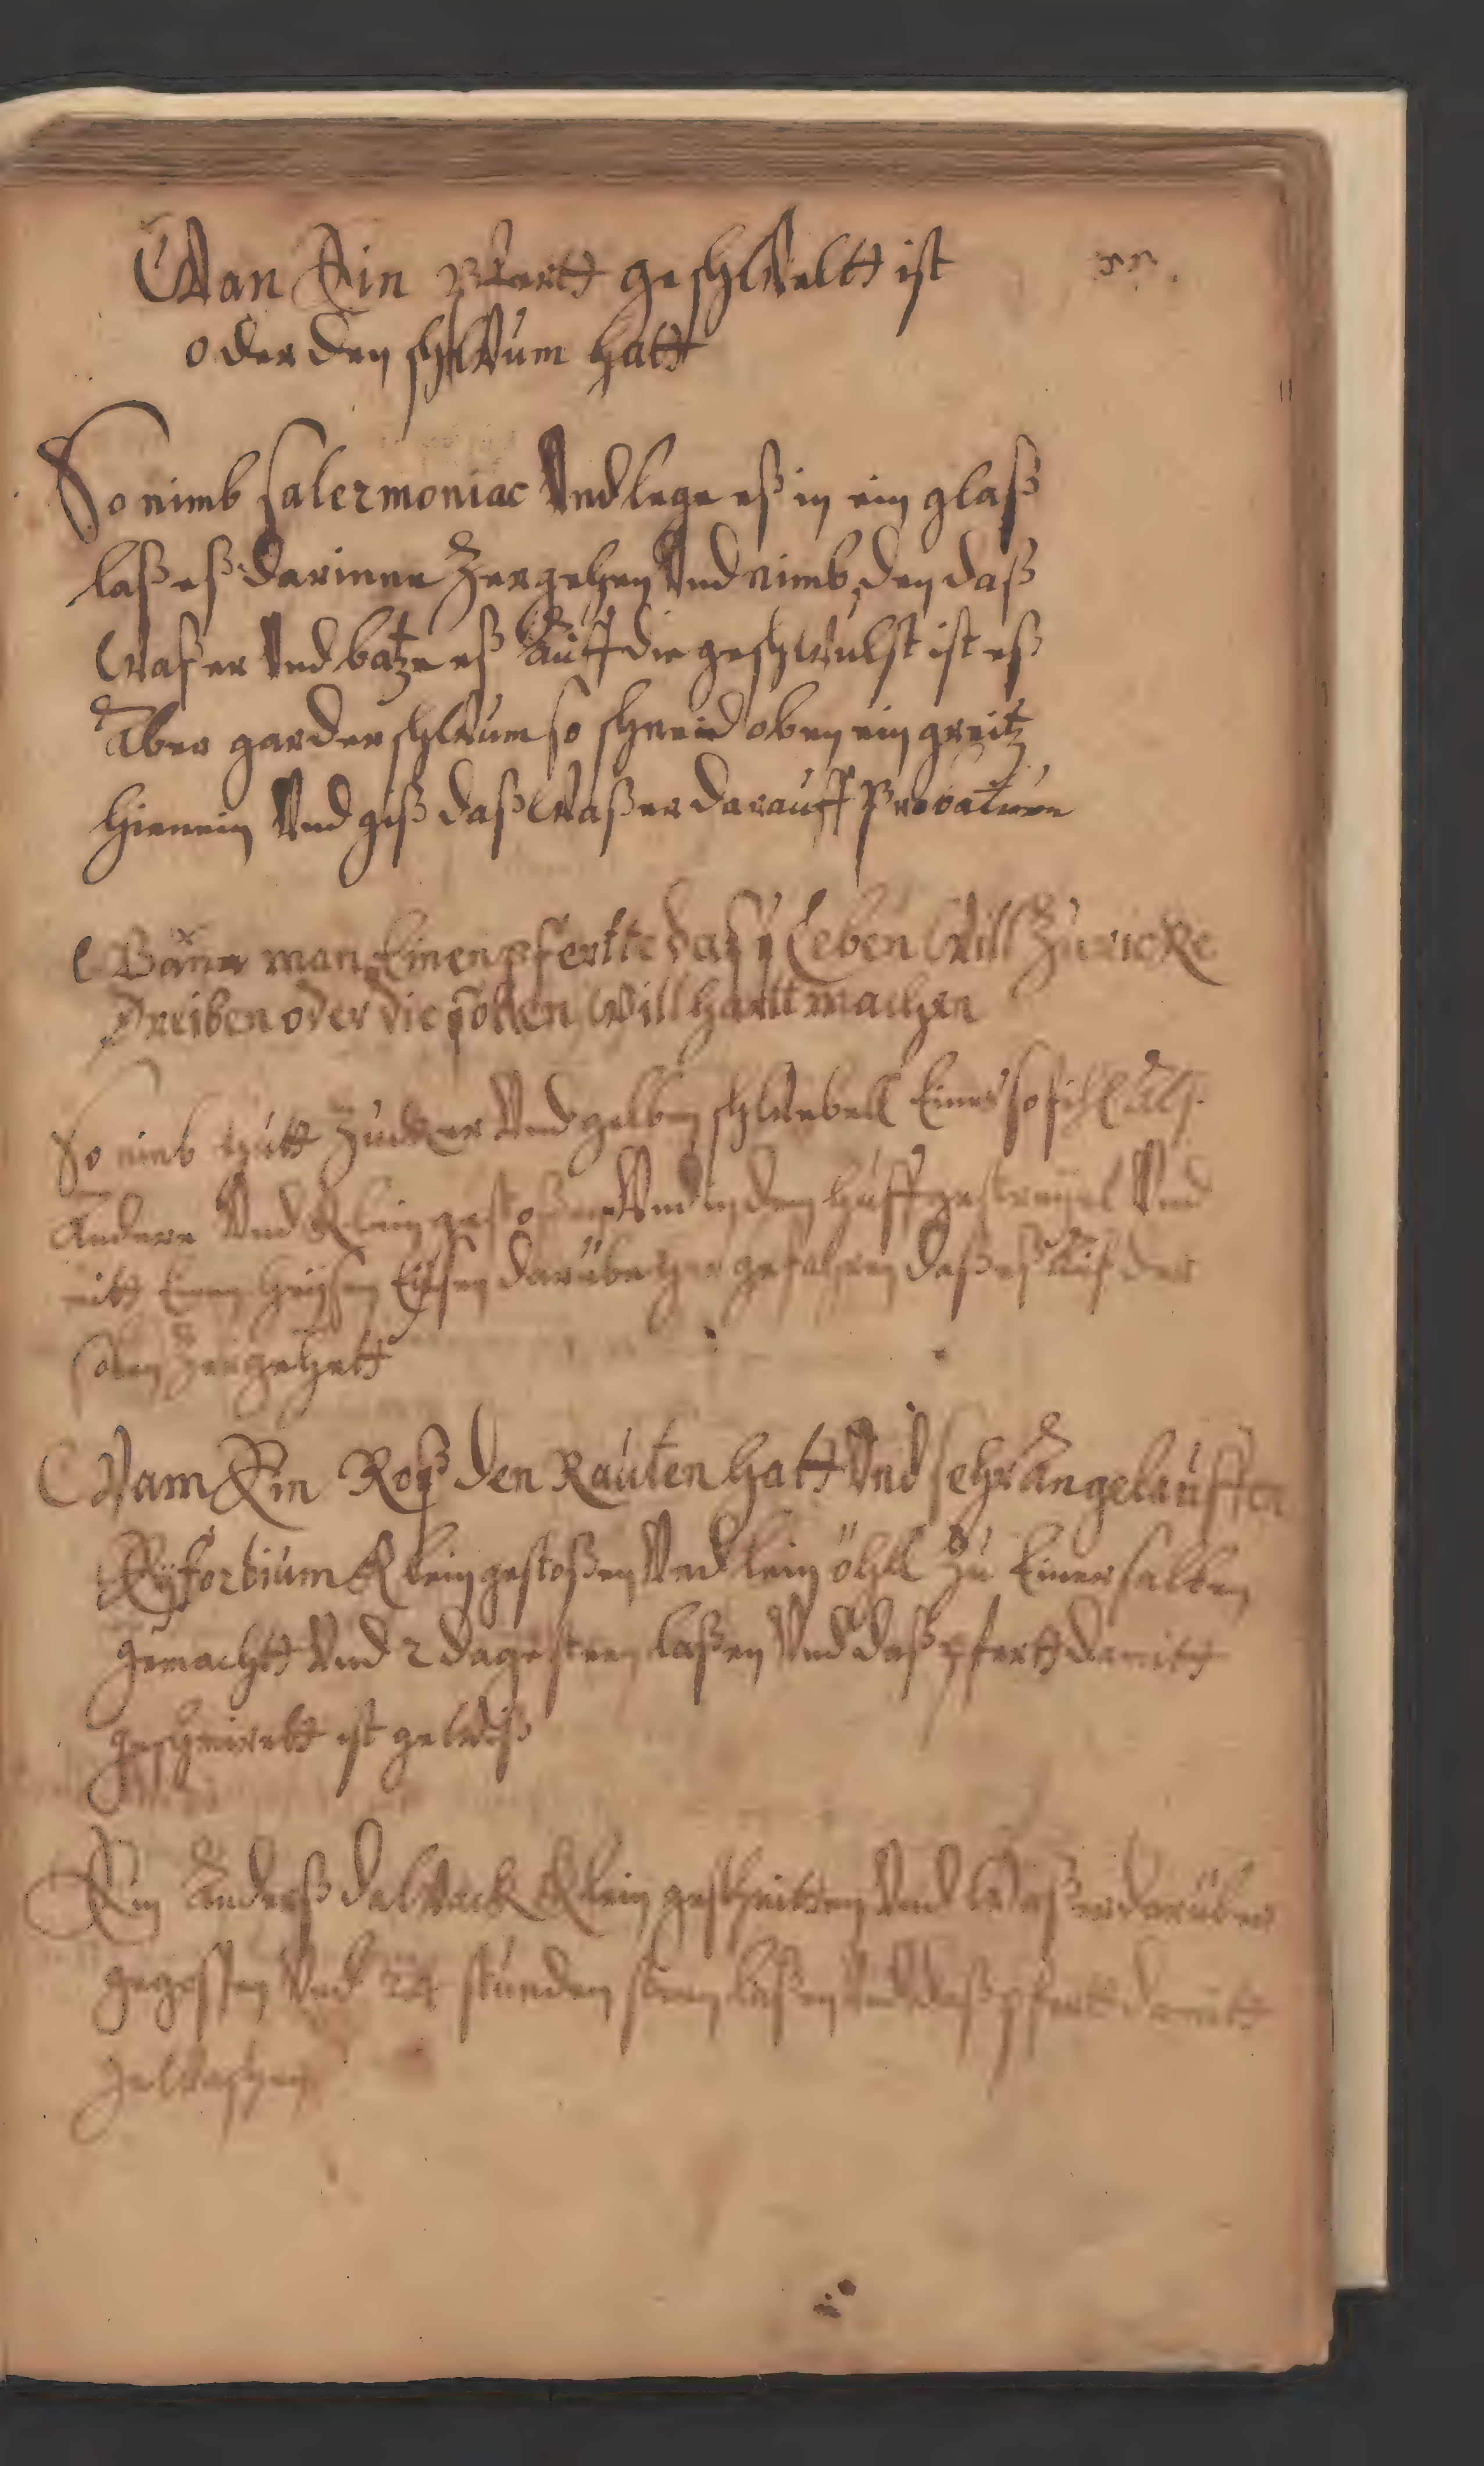 Wan Ein Pfertt geschWeltt ist
oder den schWum hatt
So nimb salermoniac Vnd lege eß in ein glaß
laß eß darinne Zergehen Vnd nimb den daß
Waßer Vnd batze eß Auff die geschWulst ist eß
Aber gar der schWum so schneid oben ein greitz
hienein Vnd giß daß Waßer darauff Probatum
Wann man Einen pfertte daß Leben Will Zuricke
Dreiben oder die solen Will hartt machen
So nimb hutt Zucker Vnd gelben schWebell Eines so fihl alß
Andere Vnd Klein gestoßen Vnd in den huff gestreyet Vnd
mitt Einen heysen Eissen darüber her gefahren daß eß Auf der
solen Zergehett
Wann Ein Roß den Rauten hatt Vnd sehr Angelauffen
Eyforbium Klein gestoßen Vnd lein öhll Zu Einer salben
gemachtt Vnd 2 dage steen laßen Vnd daß pfertt damitt
geschmirett ist geWiß
Ein Anderß daWack Klein geschnitten Vnd Waßer darüber
gegossen Vnd 24 stunden steen laßen Vnd daß pfertt damitt
geWaschen